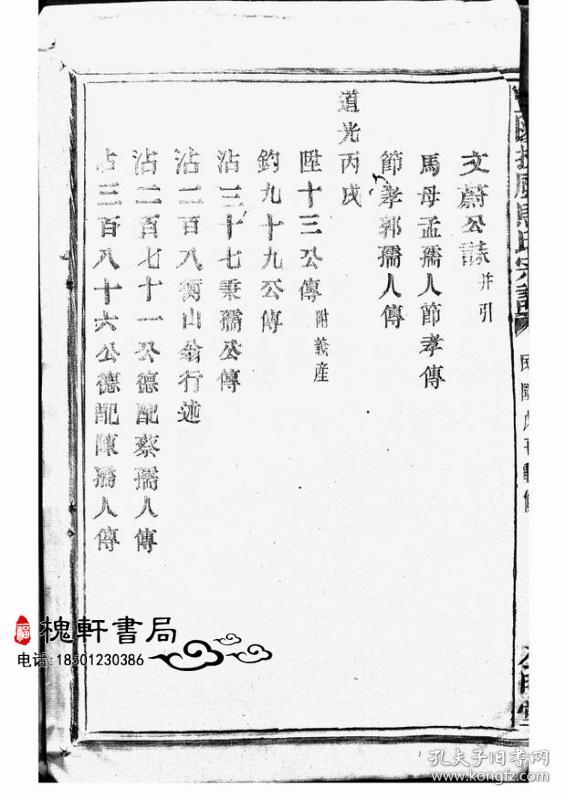 文蔚公誄并引
馬母孟孺人節孝傳
節孝郭孺人傳
道光丙戌
陞十三公傳附義産
鈞九十九公傳
沾三十七秉孺公傳
沾二百八衡山翁行述
沾二百七十一公德配蔡孺人傳
沾三百八十六公德配陳孺人傳
扶風馬氏宗譜
槐軒書局
电话:18501230386
孔夫子旧书网
www.kongfz.com